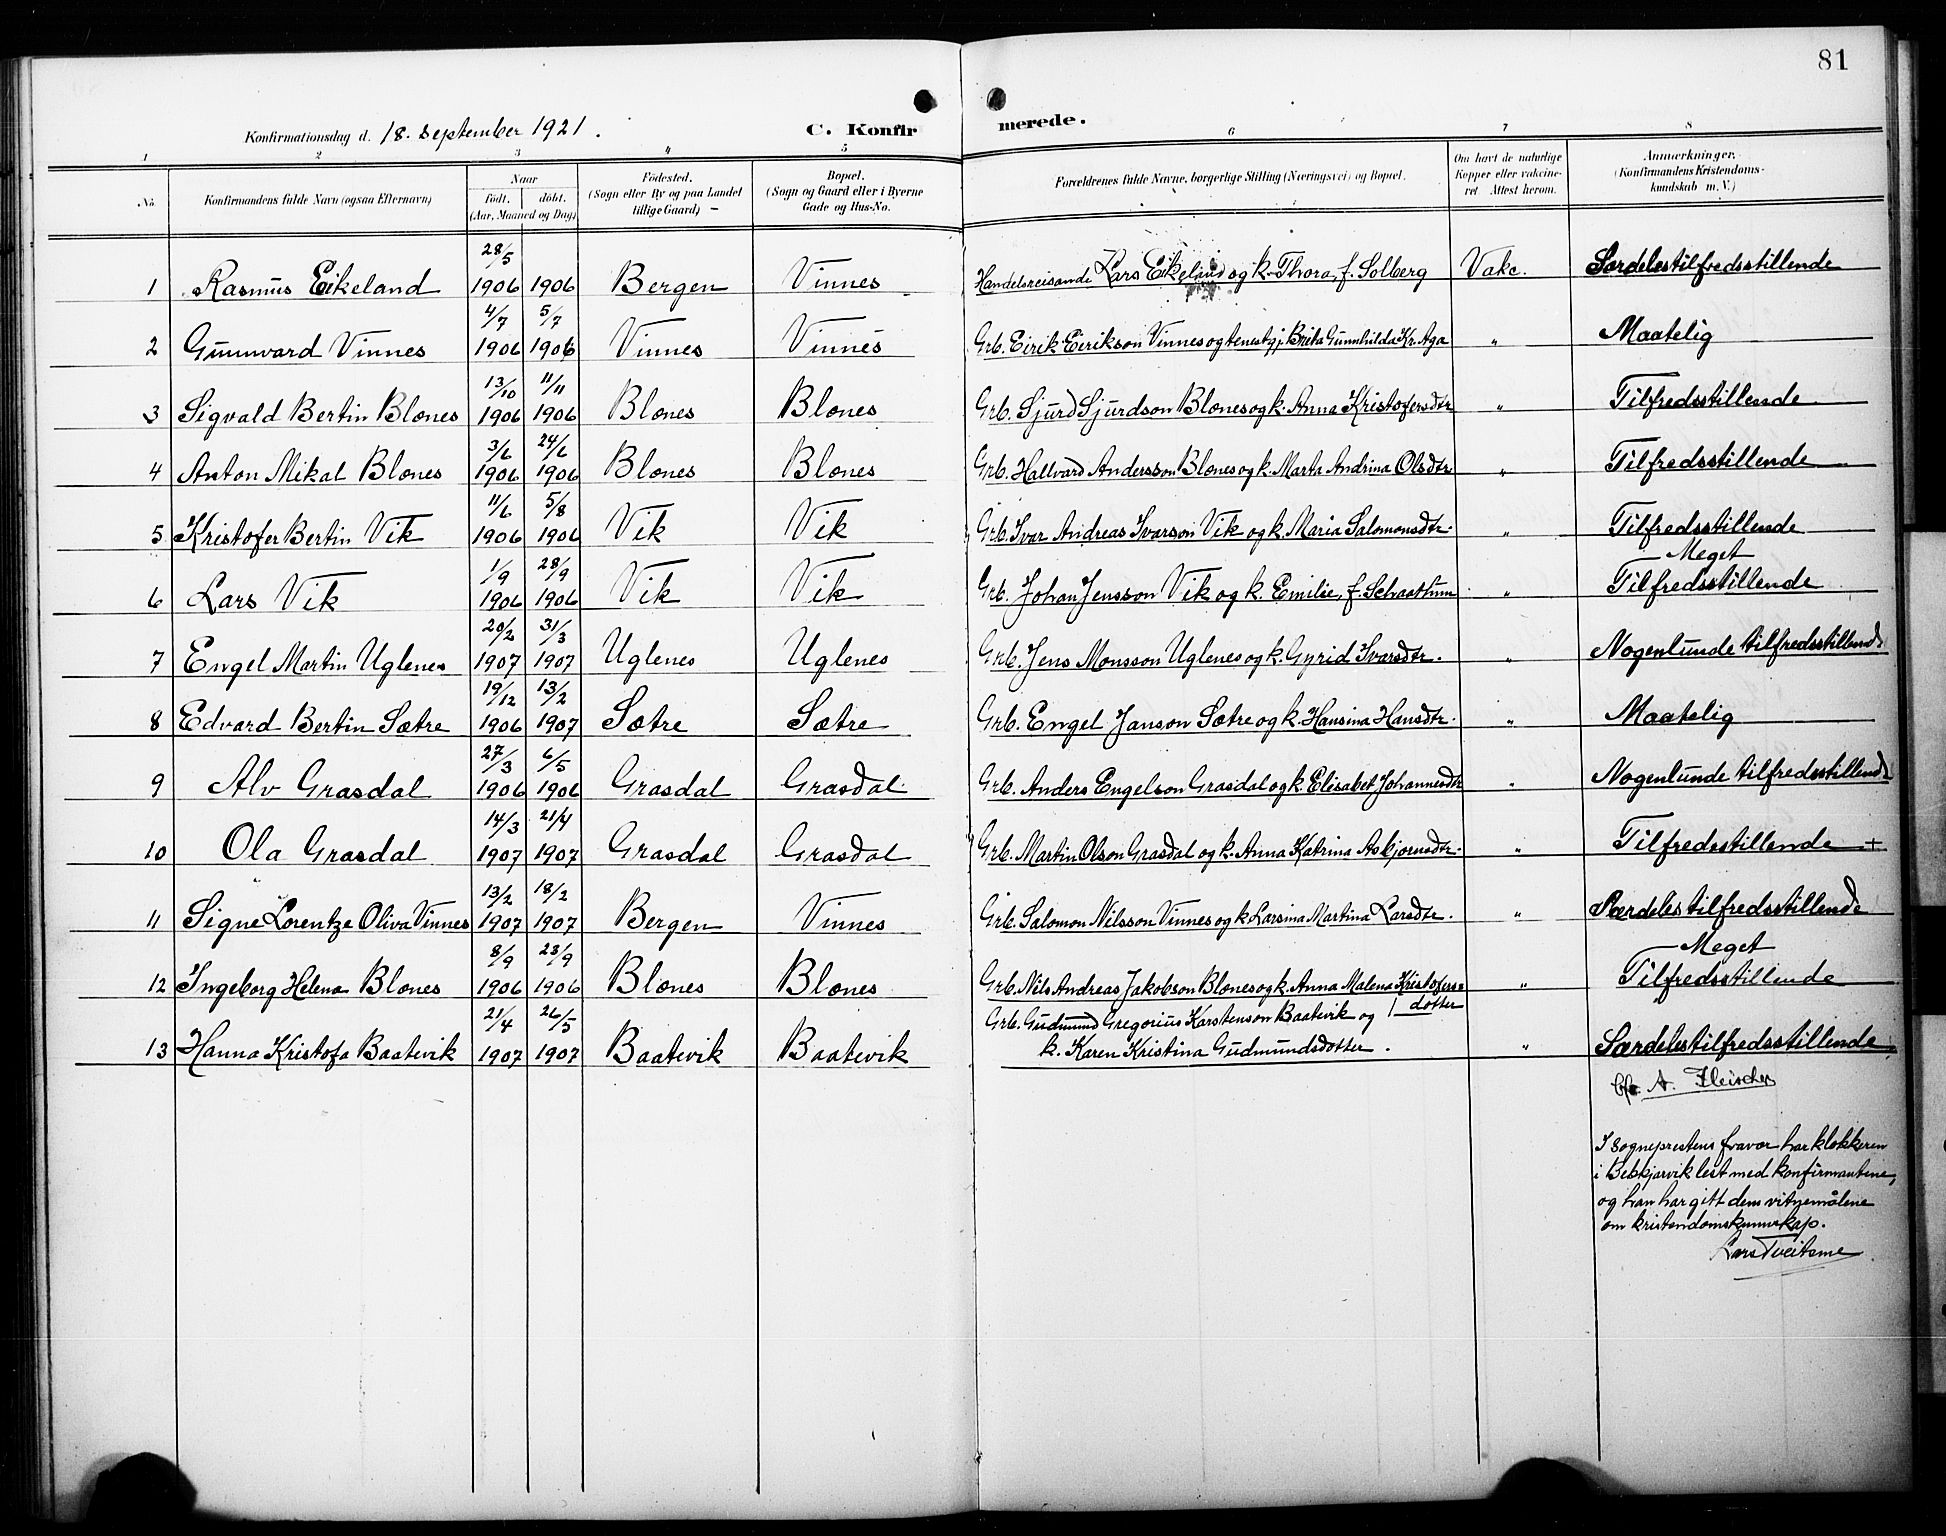 81
Konfirmationsdag d. 18. September 1921. C. Konfirmerede.
1 2 3 4 5 6 7 8
No. Konfirmandens fulde Navn (ogsaa Efternavn) Naar født. døbt. (Aar, Maaned og Dag) Fødested. (Sogn eller By og paa Landet tillige Gaard) Bopæl. (Sogn og Gaard eller i Byerne Gade og Hus-No. Forældrenes fulde Navne, borgerlige Stilling (Næringsvei) og Bopæl. Om havt de naturlige Kopper eller vakcineret Attest herom. Anmærkninger. (Konfirmandens Kristendomskundskab m. V.)
1 Rasmus Eikeland 28/5 1906 1906 Bergen Vinnes Handelsreisande Lars Eikeland og k. Thora, f. Solberg Vakc. Særdeles tilfredsstillende
2 Gunnvard Vinnes 4/7 1906 5/7 1906 Vinnes Vinnes Grb. Eirik Eirikson Vinnes og tenestgj. Brita Gunnhilda Kr. Aga " Maatelig
3 Sigvald Bertin Blænes 13/10 1906 11/11 1906 Blænes Blænes Grb. Sjurd Sjurdson Blænes og k. Anna Kristofersdtr " Tilfredsstillende
4 Anton Mikal Blænes 3/6 1906 24/6 1906 Blænes Blænes Grb. Hallvard Andersson Blænes og k. Marta Andrina Olsdtr " Tilfredsstillende
5 Kristofer Bertin Vik 11/6 1906 5/8 1906 Vik Vik Grb. Ivar Andreas Ivarson Vik og k. Maria Salomonsdtr. " Tilfredsstillende
6 Lars Vik 1/9 1906 28/9 1906 Vik Vik Grb. Johan Jensson Vik og k. Emilie, f. Schaathun " Meget Tilfredsstillende
7 Engel Martin Uglenes 20/2 1907 31/3 1907 Uglenes Uglenes Grb. Jens Monsson Uglenes og k. Gyrid Ivarsdtr. " Nogenlunde tilfredsstillende
8 Edvard Bertin Sætre 19/12 1906 13/2 1907 Sætre Sætre Grb. Engel Janson Sætre og k. Hansina Hansdtr. " Maatelig
9 Alv Grasdal 27/3 1906 6/5 1906 Grasdal Grasdal Grb. Anders Engelson Grasdal og k. Elisabet Johannesdtr " Nogenlunde tilfredsstillende
10 Ola Grasdal 14/3 1907 21/4 1907 Grasdal Grasdal Grb. Martin Olson Grasdal og k. Anna Katrina Asbjørnsdtr. " Tilfredsstillende +
11 Signe Lorentze Oliva Vinnes 13/2 1907 18/2 1907 Bergen Vinnes Grb. Salomon Nilsson Vinnes og k Larsina Martina Larsdtr. " Særdeles tilfredsstillende
12 Ingeborg Helena Blænes 8/9 1906 23/9 1906 Blænes Blænes Grb. Nils Andreas Jakobson Blænes og k. Anna Malena Kristofersdotter " Meget Tilfredsstillende
13 Hanna Kristofa Baatevik 21/4 1907 26/5 1907 Baatevik Baatevik Grb. Gudmund Gregorius Karstenson Baatevik og k. Karen Kristina Gudmundsdotter. " Særdeles tilfredsstillende
A. Fleischer
I sogneprestens fravær har klokkeren
i Bekkjarvik lest med konfirmantene,
og han har gitt dem vitnemålene
om kristendomskunnskap.
Lars Tveitsme